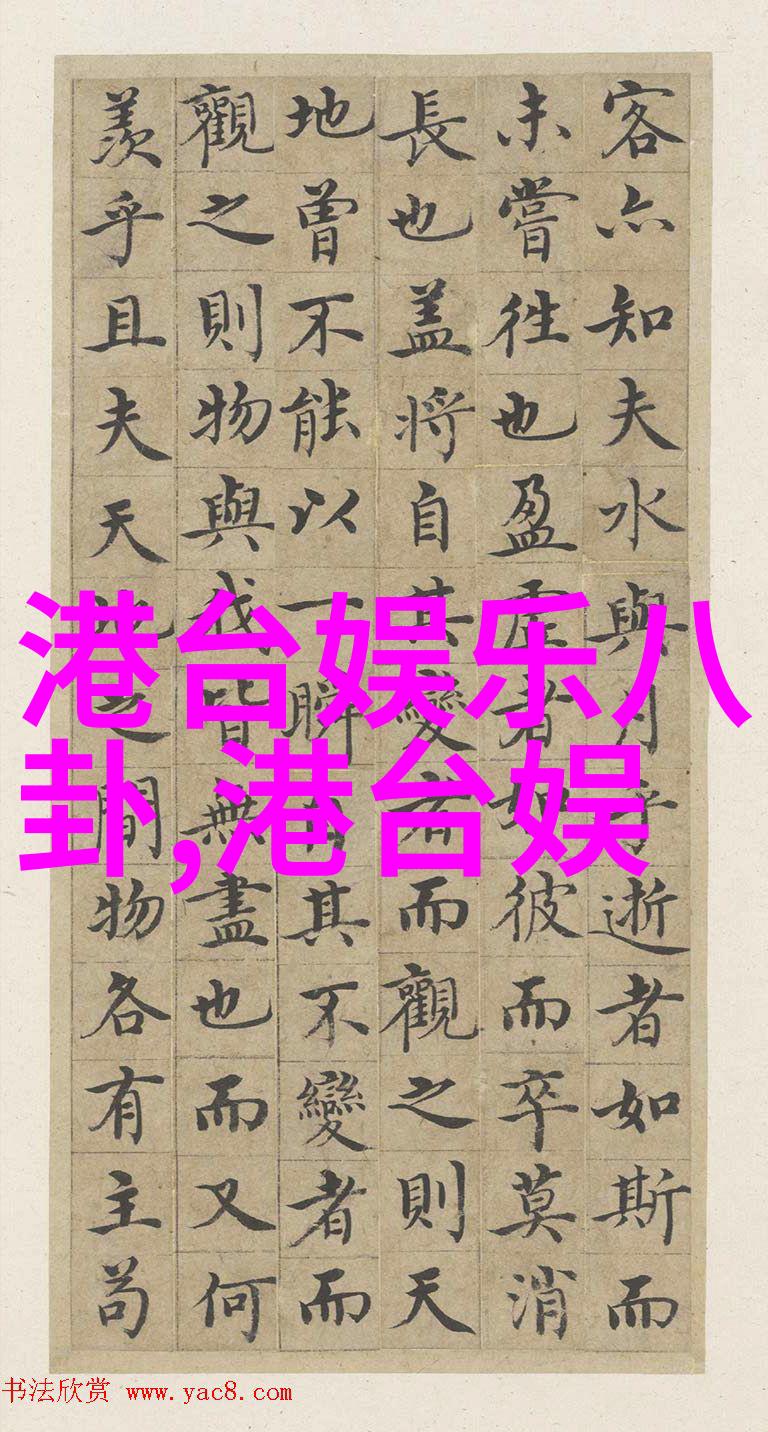 客亦知夫水與月乎逝者如斯而
未嘗徃也盈虛者如彼而卒莫消
長也盖將自其變者而觀之則天
地曾不能以一瞬自其不變者而
觀之則物與我皆無盡也而又何
羨乎且夫天地之間物各有主苟
港台娱乐八
卦,港台娱
书法欣赏 www.yac8.com